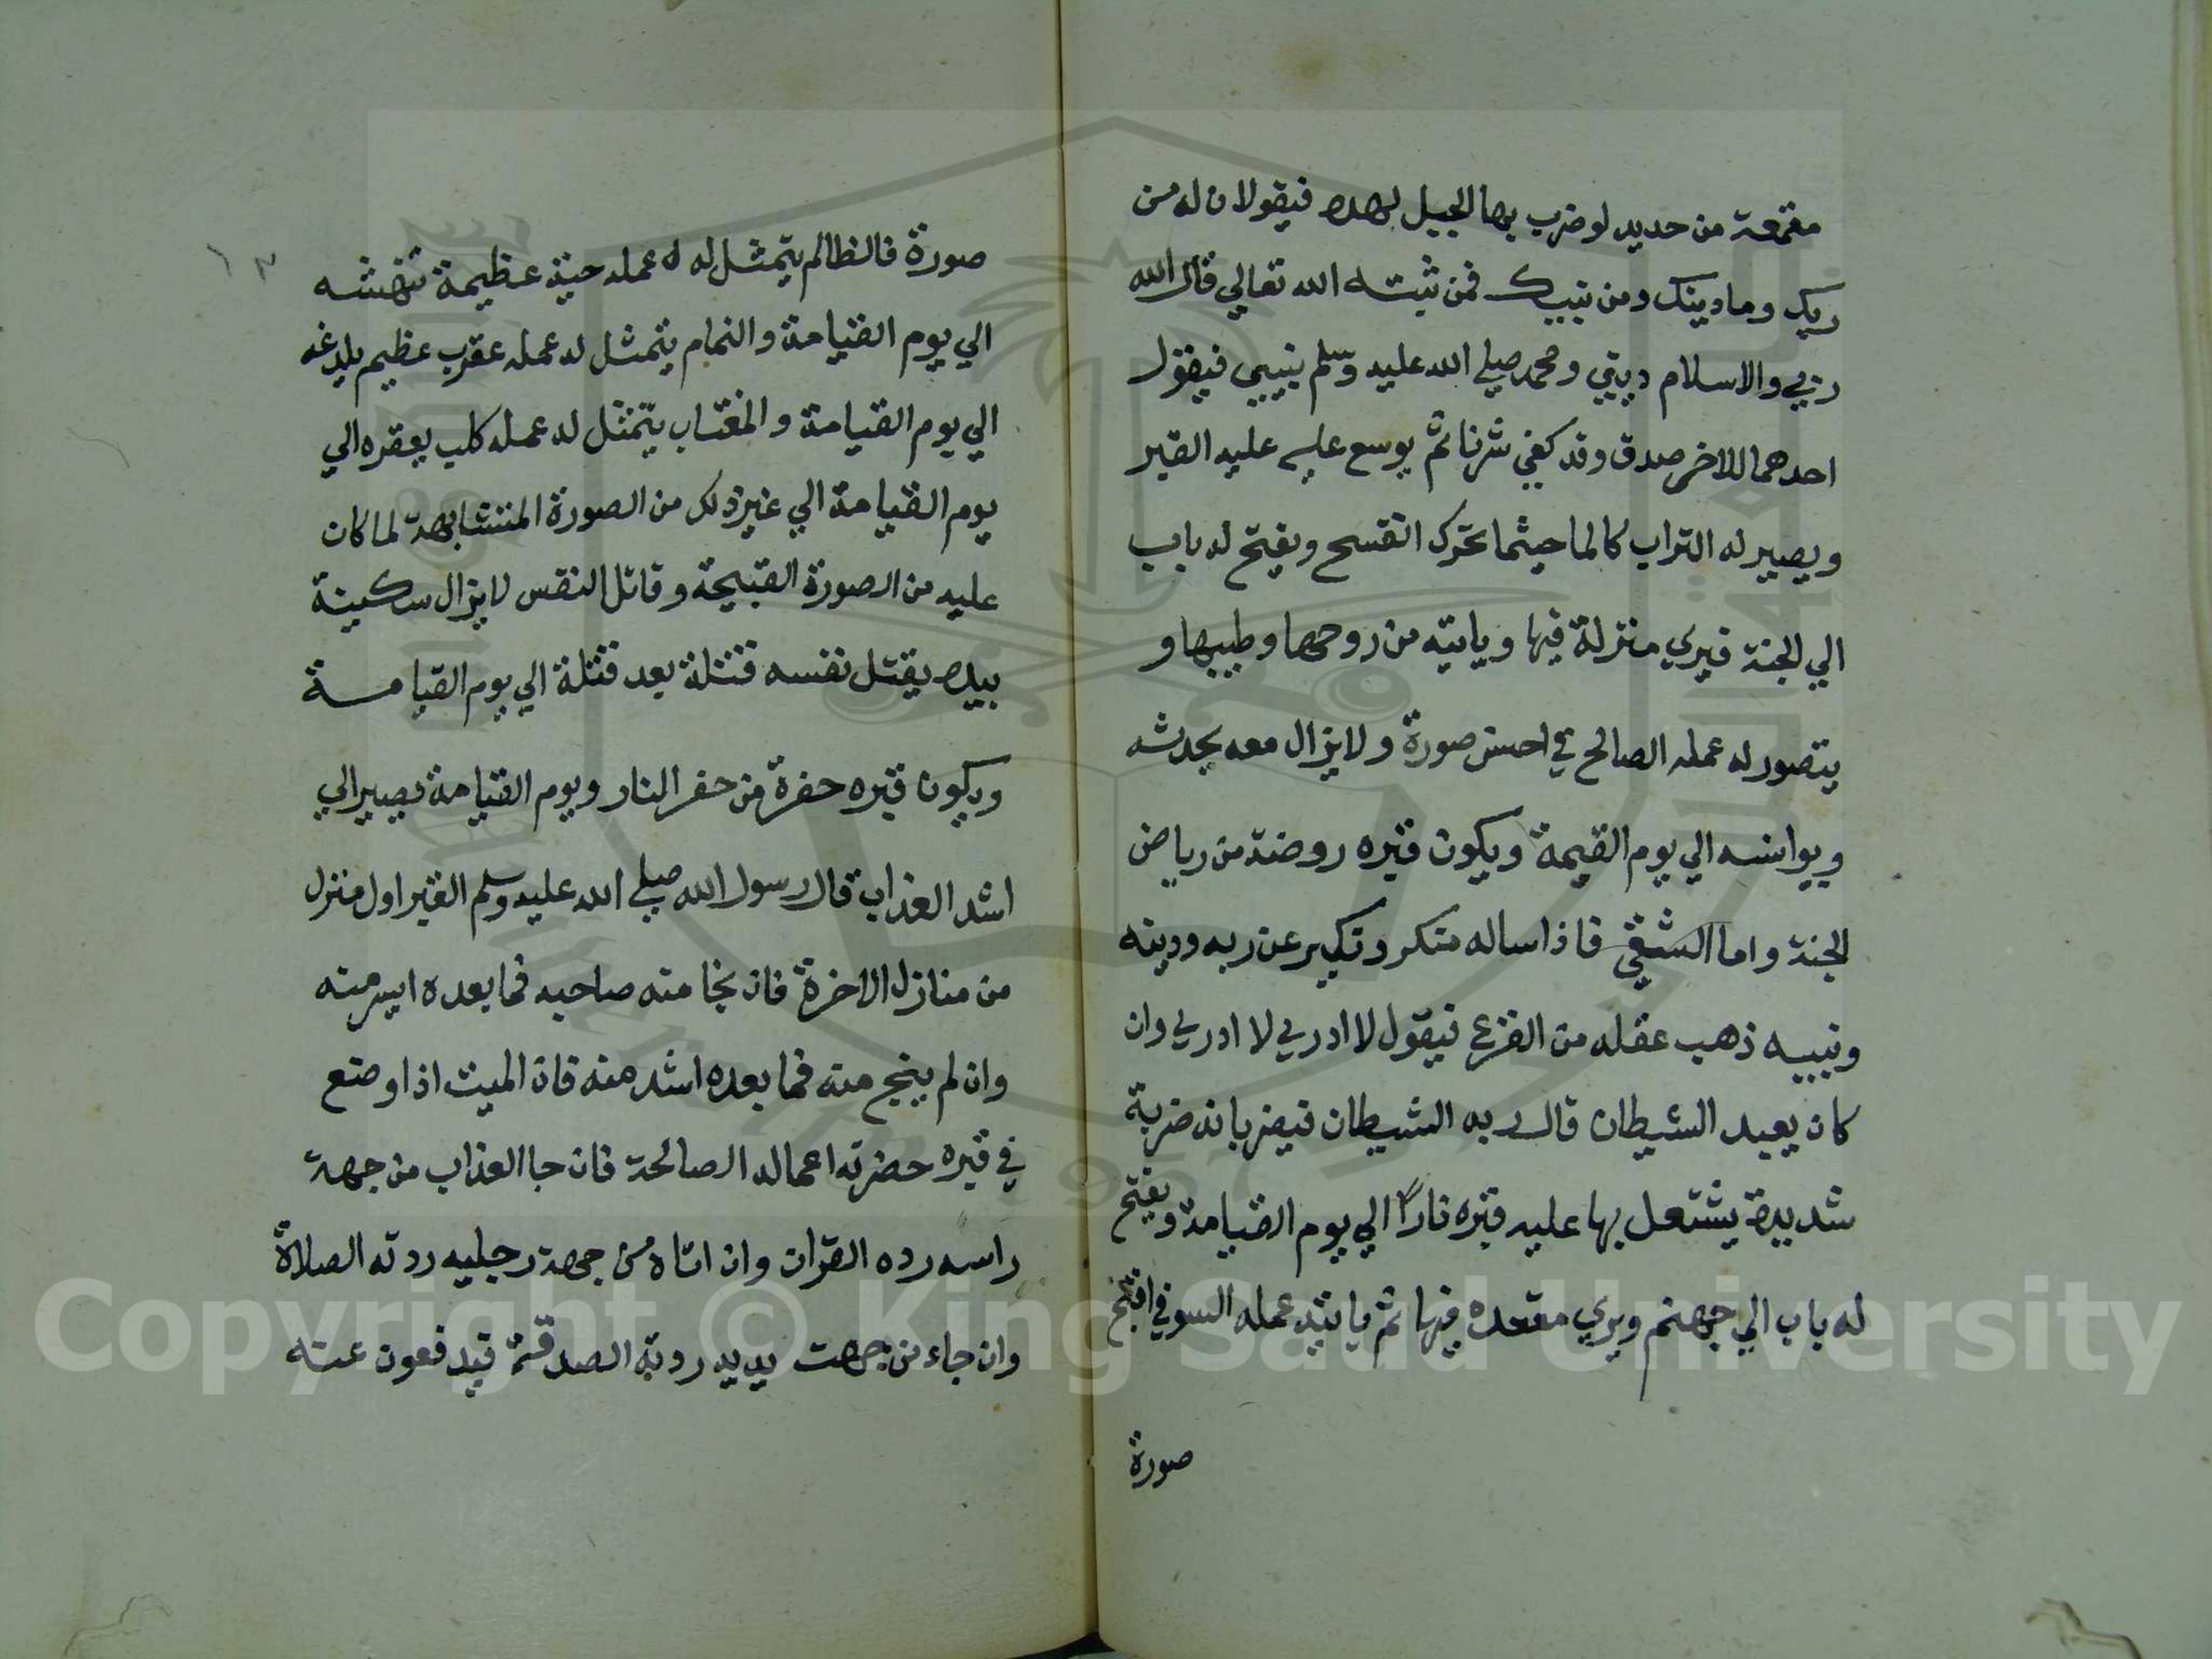 مقمعة من حديد لو ضرب بها الجبل لهده فيقولان له من
ربك وما دينك ومن نبيك فمن ثبته الله تعالي قال الله
ربي والاسلام ديني ومحمد صلي الله عليه وسلم نبيي فيقول
احدهما للاخر صدق وقد كفي شرنا ثم يوسع عليه عليه القبر
ويصير له التراب كالما حيثما تحرك انفسح ويفتح له باب
الي الجنة فيري منزلة فيها وياتيه من روحها وطيبها و
يتصور له عمله الصالح في احسن صورة ولا يزال معه يحدثه
ويوانسه الي يوم القيمة ويكون قبره روضة من رياض
الجنة واما الشقي فاذا ساله منكر ونكير عن ربه ودينه
ونبيه ذهب عقله من الفزع فيقول لا ادري لا ادري وان
كان يعبد الشيطان قال ربه الشيطان فيضربانه ضربة
شديدة يشتعل بها عليه قبره نارًا الي يوم القيامة ويفتح
له باب الي جهنم ويري مقعده فيها ثم ياتيه عمله السو في اقبح
صورة
١٣
صورة فالظالم يتمثل له عمله حية عظيمة تنهشه
الي يوم القيامة والنمام يتمثل له عمله عقرب عظيم يلدغه
الي يوم القيامة والمغتاب يتمثل له عمله كلب يعقره الي
يوم القيامة الي غير ذلك من الصورة المتشابهة لما كان
عليه من الصورة القبيحة وقاتل النفس لا يزال سكينة
بيده يقتل نفسه قتلة بعد قتلة الي يوم القيامة
ويكون قبره حفرة من حفر النار ويوم القيامة يصير الي
اشد العذاب قال رسول الله صلي الله عليه وسلم القبر اول منزل
من منازل الاخرة فان نجا منه صاحبه فما بعده ايسر منه
وان لم ينج منه فما بعده اشد منه فان الميت اذا وضع
في قبره حضرته اعماله الصالحة فان جا العذاب من جهة
راسه رده القران وان اتاه من جهة رجليه ردته الصلاة
وان جاء من جهت يديه ردته الصدقة فيدفعون عنه
Copyright © King Saud University